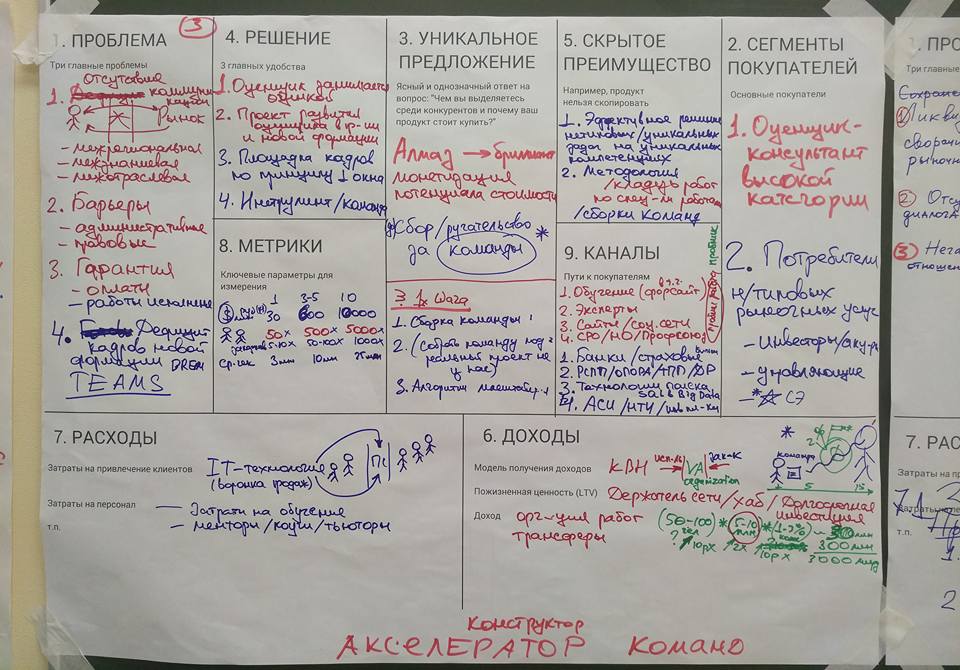 3
1. ПРОБЛЕМА
Три главные проблемы
Отсутствие
1. коммуни
Рынок
- межрегиональная
- межзнаниевая
- межотраслевая
2. Барьеры
- административные
- правовые
3. Гарантия
- оплаты
- работы исполнения
4. Дефицит
кадров новой
формации DREAM
TEAMS
4. РЕШЕНИЕ
3 главных удобства
1. Оценщик занимается
оценкой
2. Проект развития
и новой формации
3. Площадка кадров
по принципу 1 окна
4. Инструмент/команда
8. МЕТРИКИ
Ключевые параметры для
измерения
1 3-5 10
30 600 10000
50x 500x 5000x
5-10x 50-100x 1000x
Ср. чек 3млн 10млн 25млн
3. УНИКАЛЬНОЕ
ПРЕДЛОЖЕНИЕ
Ясный и однозначный ответ на
вопрос: "Чем вы выделяетесь
среди конкурентов и почему ваш
продукт стоит купить?"
Алмаз → бриллиант
монетизация
потенциала стоимости
Сбор/ручательство *
за команды
3 1х шага
1. Сборка команды
2. (Собрать команду под
реальный проект не
у нас)
3. Алгоритм масштабир.
5. СКРЫТОЕ
ПРЕИМУЩЕСТВО
Например, продукт
нельзя скопировать
1. Эффективное решение
нетиповых/уникальных
задач на уникальных
компетенциях
2. Методология
/кладезь работ
по спец-ти работам
/сборки команд
9. КАНАЛЫ
Пути к покупателям
пробник
1. Обучение (форсайт)
2. Эксперты
3. Сайты/соц. сети
4. СРО/НО/Профсоюз
1. Банки/страховые
2. РСПП/ОПОРА/ТПП/ДР
3. Технологии поиска
sales Big Data
4. АСИ/НТИ/
2. СЕГМЕНТЫ
ПОКУПАТЕЛЕЙ
Основные покупатели
1. Оценщик-
консультант
высокой
категории
2. Потребители
н/типовых
рыночных услуг
- Инвесторы/
- управляющие
- СЭ
7. РАСХОДЫ
Затраты на привлечение клиентов
IT-технологие
(воронка продаж)
Затраты на персонал
— Затраты на обучение
т.п.
— менторы/коучи/тьюторы
6. ДОХОДЫ
Модель получения доходов
КВН исп-ль VA зак-к
organization
*
команда
%
2
5 15
Пожизненная ценность (LTV)
Держатель сети/хаб/Долгосрочная
инвестиция
Доход
орг-ция работ
трансферы
(50-100) * 5-10 * 1-3%
чел млн
? 10рх 2х 10рх
300млн
3000 млрд
Конструктор
АКСЕЛЕРАТОР команд
1. ПРО
Три главные
1
Ликви
сворачи
рыночн
2
Отсу
диалога
3
Нега
отношен
7. РАС
Затраты на пр
т.п.
1.
2